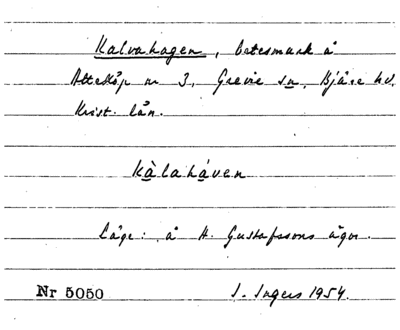 Kalvahagen, betesmark å
Atteköp nr 3, Grevie sn, Bjäre hd.
Krist. län.
Kàlaháven
Läge: å H. Gustafssons ägor.
Nr 5050 I. Ingers 1954.